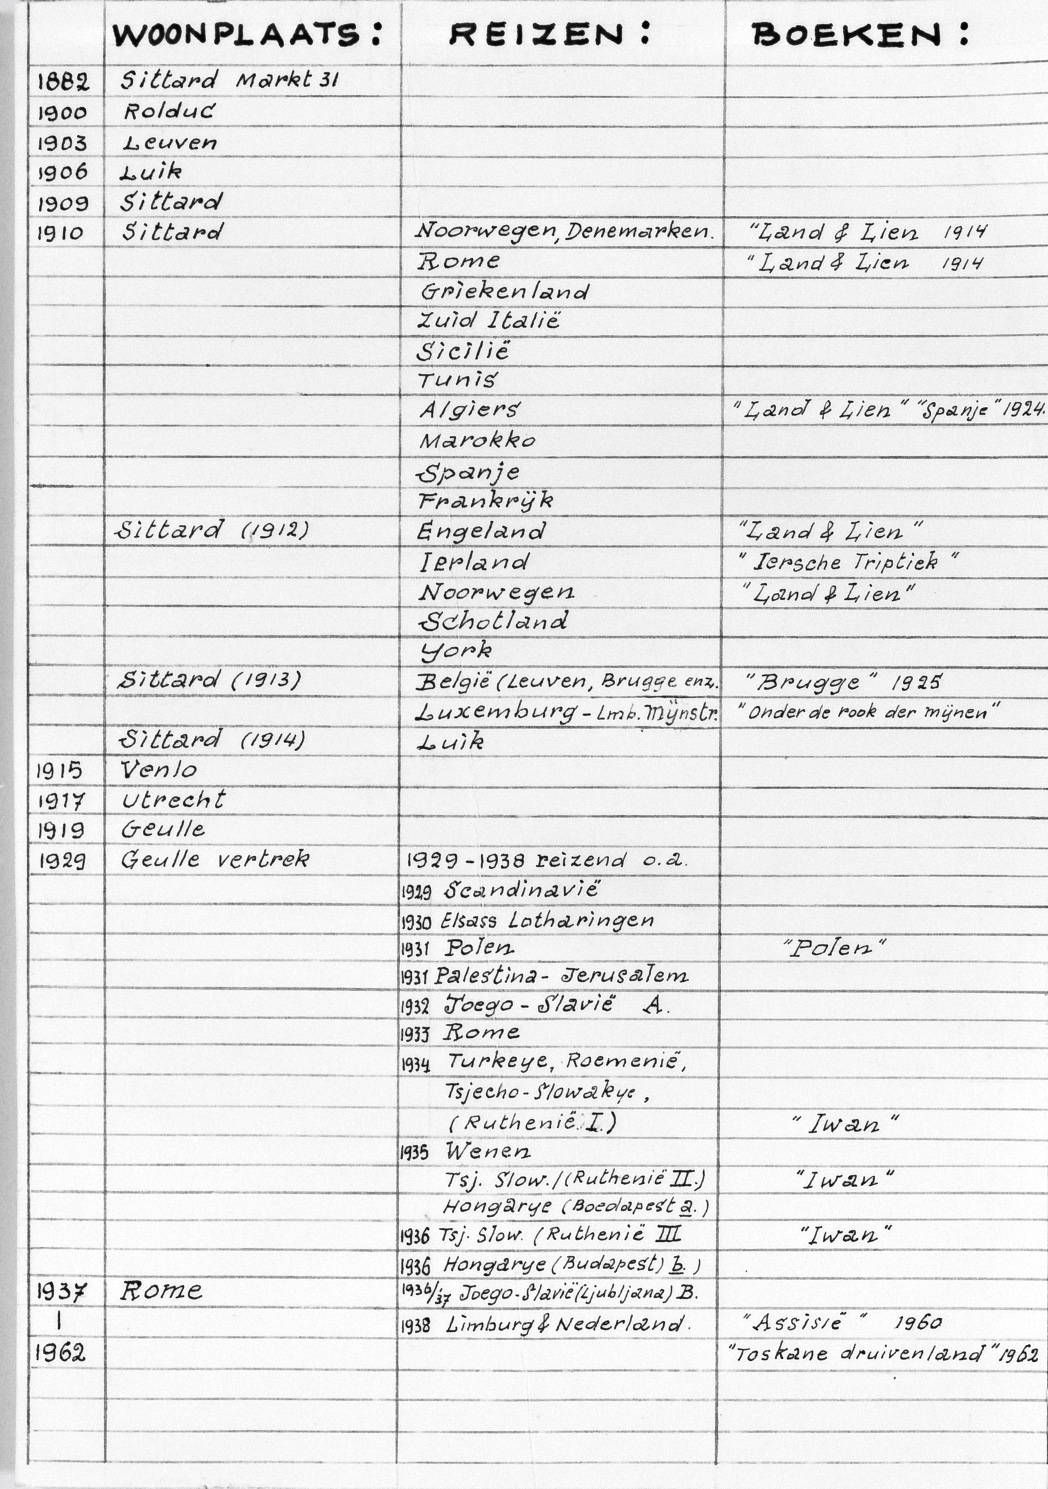 WOONPLAATS: REIZEN: BOEKEN:
1882 Sittard Markt 31
1900 Rolduc
1903 Leuven
1906 Luik
1909 Sittard
1910 Sittard Noorwegen, Denemarken. "Land & Lien 1914
Rome "Land & Lien 1914
Griekenland
Zuid Italië
Sicilië
Tunis
Algiers "Land & Lien" "Spanje" 1924.
Marokko
Spanje
Frankrijk
Sittard (1912) Engeland "Land & Lien"
Ierland "Iersche Triptiek"
Noorwegen "Land & Lien"
Schotland
York
Sittard (1913) België (Leuven, Brugge enz. "Brugge" 1925
Luxemburg - Lmb. Mijnstr. "Onder de rook der mijnen"
Sittard (1914) Luik
1915 Venlo
1917 Utrecht
1919 Geulle
1929 Geulle vertrek 1929-1938 reizend o.a.
1929 Scandinavië
1930 Elsass Lotharingen
1931 Polen "Polen"
1931 Palestina - Jerusalem
1932 Joego - Slavië A.
1933 Rome
1934 Turkeye, Roemenië,
Tsjecho-Slowakye,
(Ruthenië I.) "Iwan"
1935 Wenen
Tsj. Slow./(Ruthenië II.) "Iwan"
Hongarye (Boedapest a.)
1936 Tsj. Slow. (Ruthenië III "Iwan"
1936 Hongarye (Budapest) b.)
1937 Rome 1936/37 Joego-Slavië (Ljubljana) B.
| 1938 Limburg & Nederland. "Assisië" 1960
1962 "Toskane druivenland" 1962